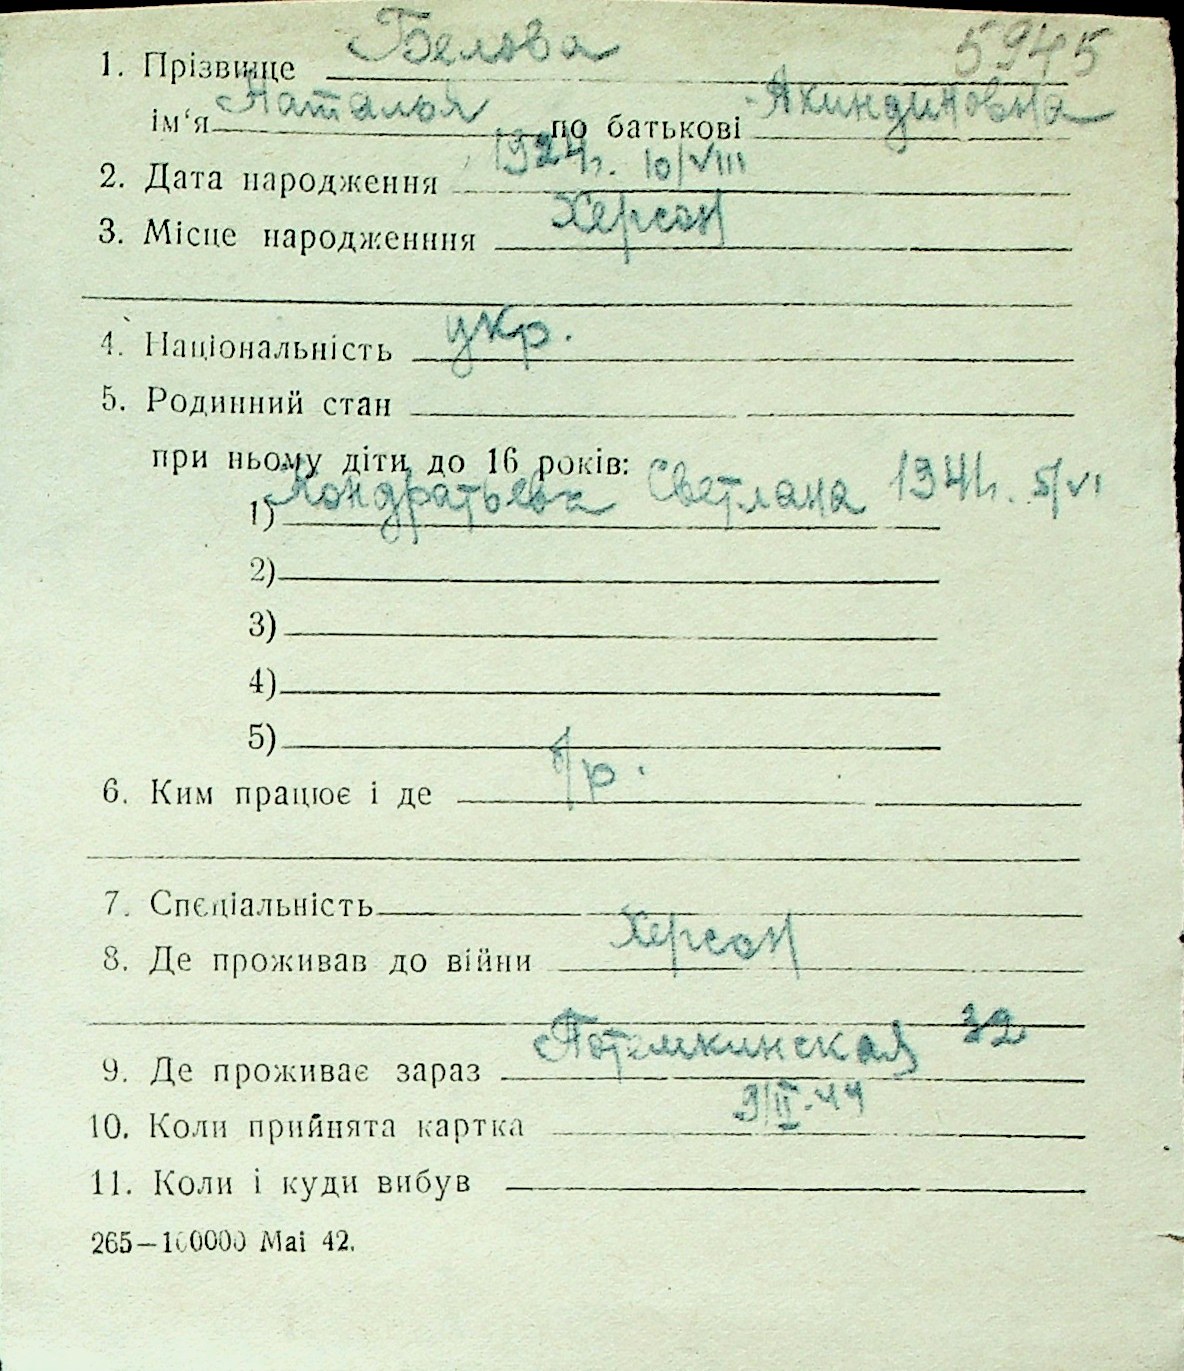 5945
1. Прізвище Белова
ім‘я Наталья по батькові Якиндиновна
2. Дата народження 1924 г. 10/VIII
3. Місце народженння Херсон
4. Національність укр.
5. Родинний стан
при ньому діти до 16 років:
1) Кондратьева Светлана 1941 г. 5/VI
2)
3)
4)
5)
6. Ким працює і де б/р.
7. Спеціальність
8. Де проживав до війни Херсон
9. Де проживає зараз Потемкинская 32
10. Коли прийнята картка 9/II-44
11. Коли і куди вибув
265—100000 Mai 42.